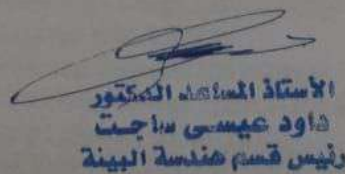 الأستاذ المساعد الدكتور
داود عيسى ساجت
رئيس قسم هندسة البيئة